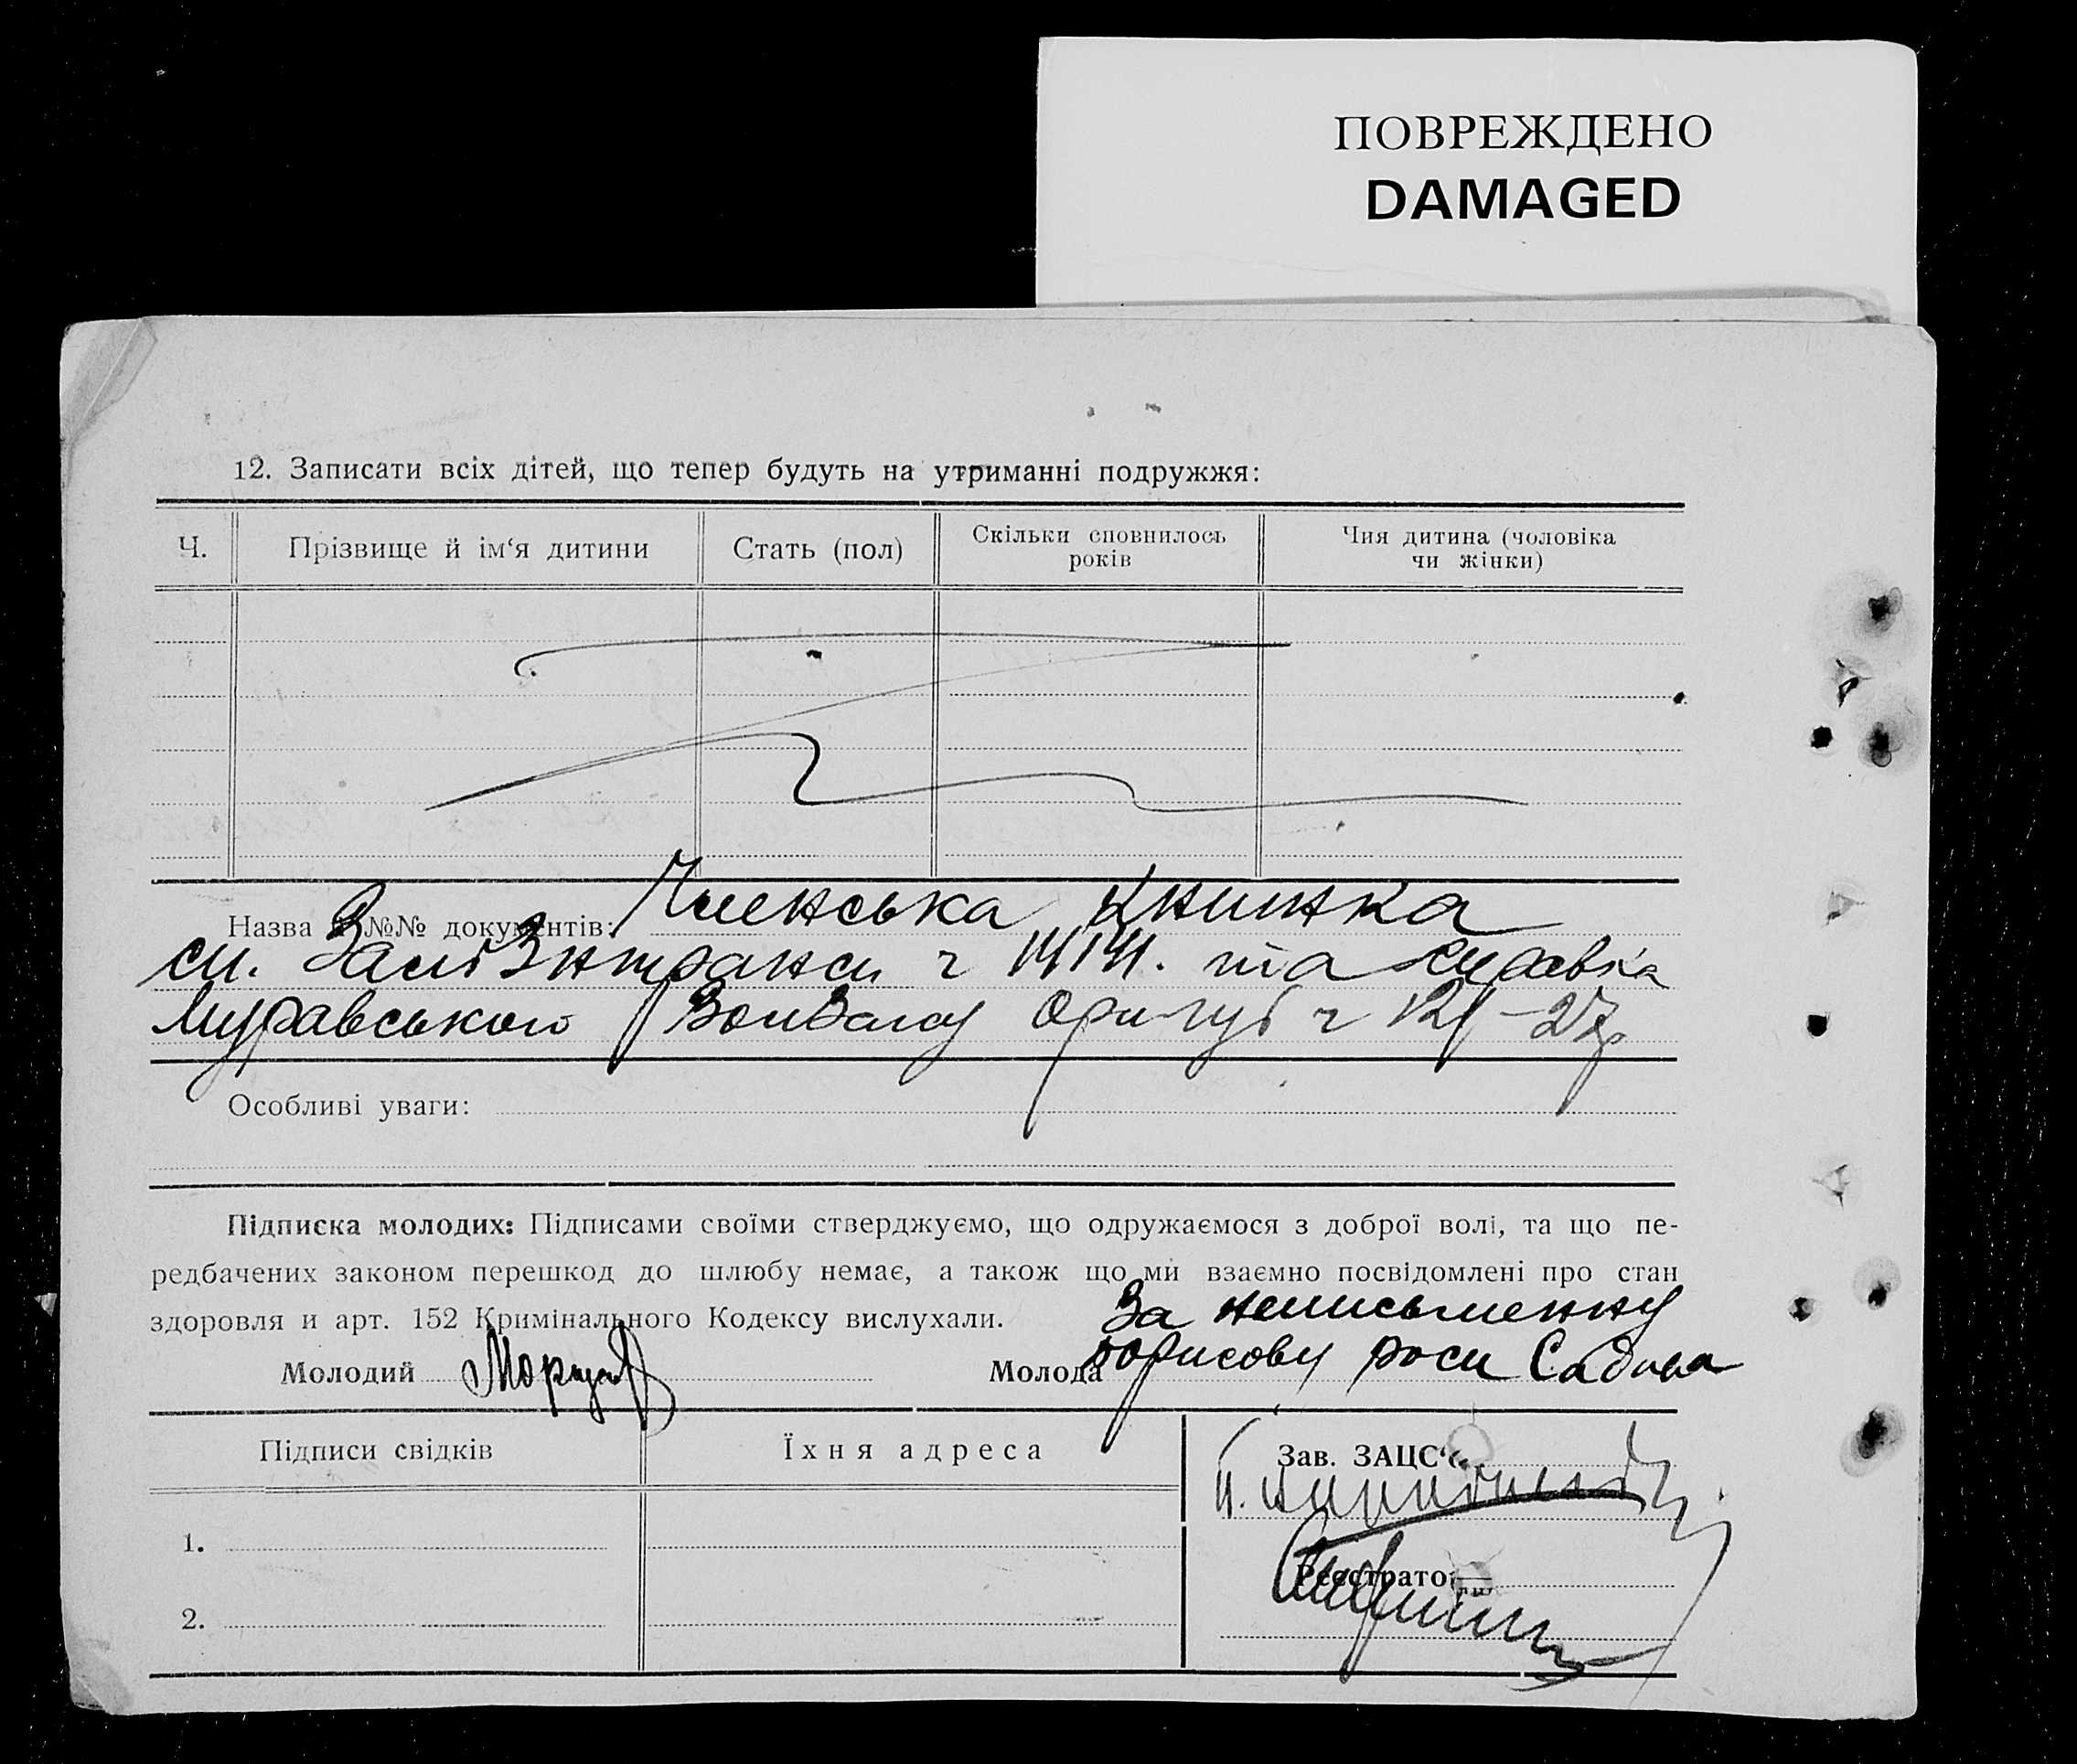 ПОВРЕЖДЕНО
DAMAGED
12. Записати всіх дітей, що тепер будуть на утриманні подружжя:
Ч. Прізвище й ім‘я дитини Стать (пол) Скільки сповнилось років Чия дитина (чоловіка чи жінки)
Назва й №№ документів: Членська Книжка
сп. ч 1414. та справка
Муравського ч 121-27р
Особливі уваги:
Підписка молодих: Підписами своїми стверджуємо, що одружаємося з доброї волі, та що пе-
редбачених законом перешкод до шлюбу немає, а також що ми взаємно посвідомлені про стан
здоровля и арт. 152 Кримінального Кодексу вислухали.
За неписьменну
Молодий Молода Борисову роси
Підписи свідків Їхня адреса Зав. ЗАЦС‘
1.
Реєстратор
2.